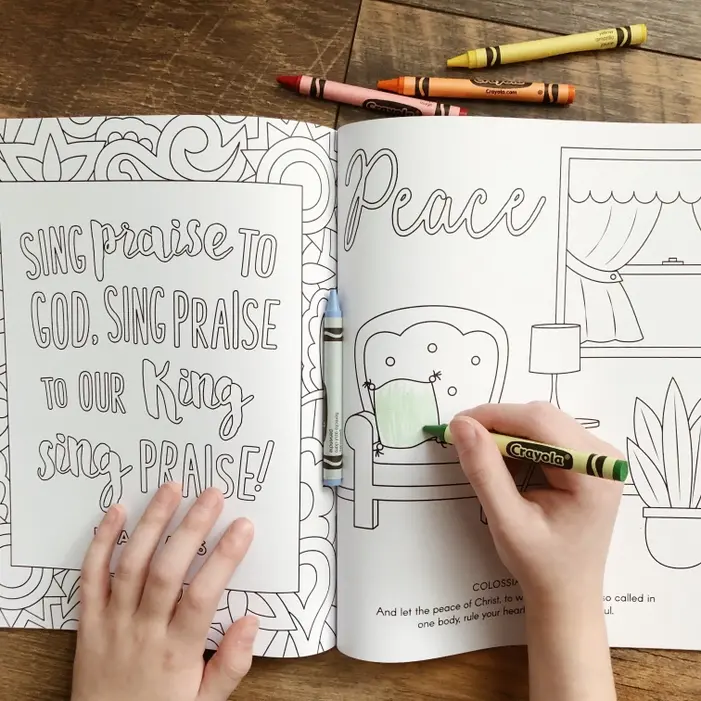 SING praise TO
GOD, SING PRAISE
TO OUR King
sing PRAISE!
Peace
COLOSSIA
And let the peace of Christ, to w so called in
one body, rule your hear ul.
Crayola
Crayola
Crayola.com